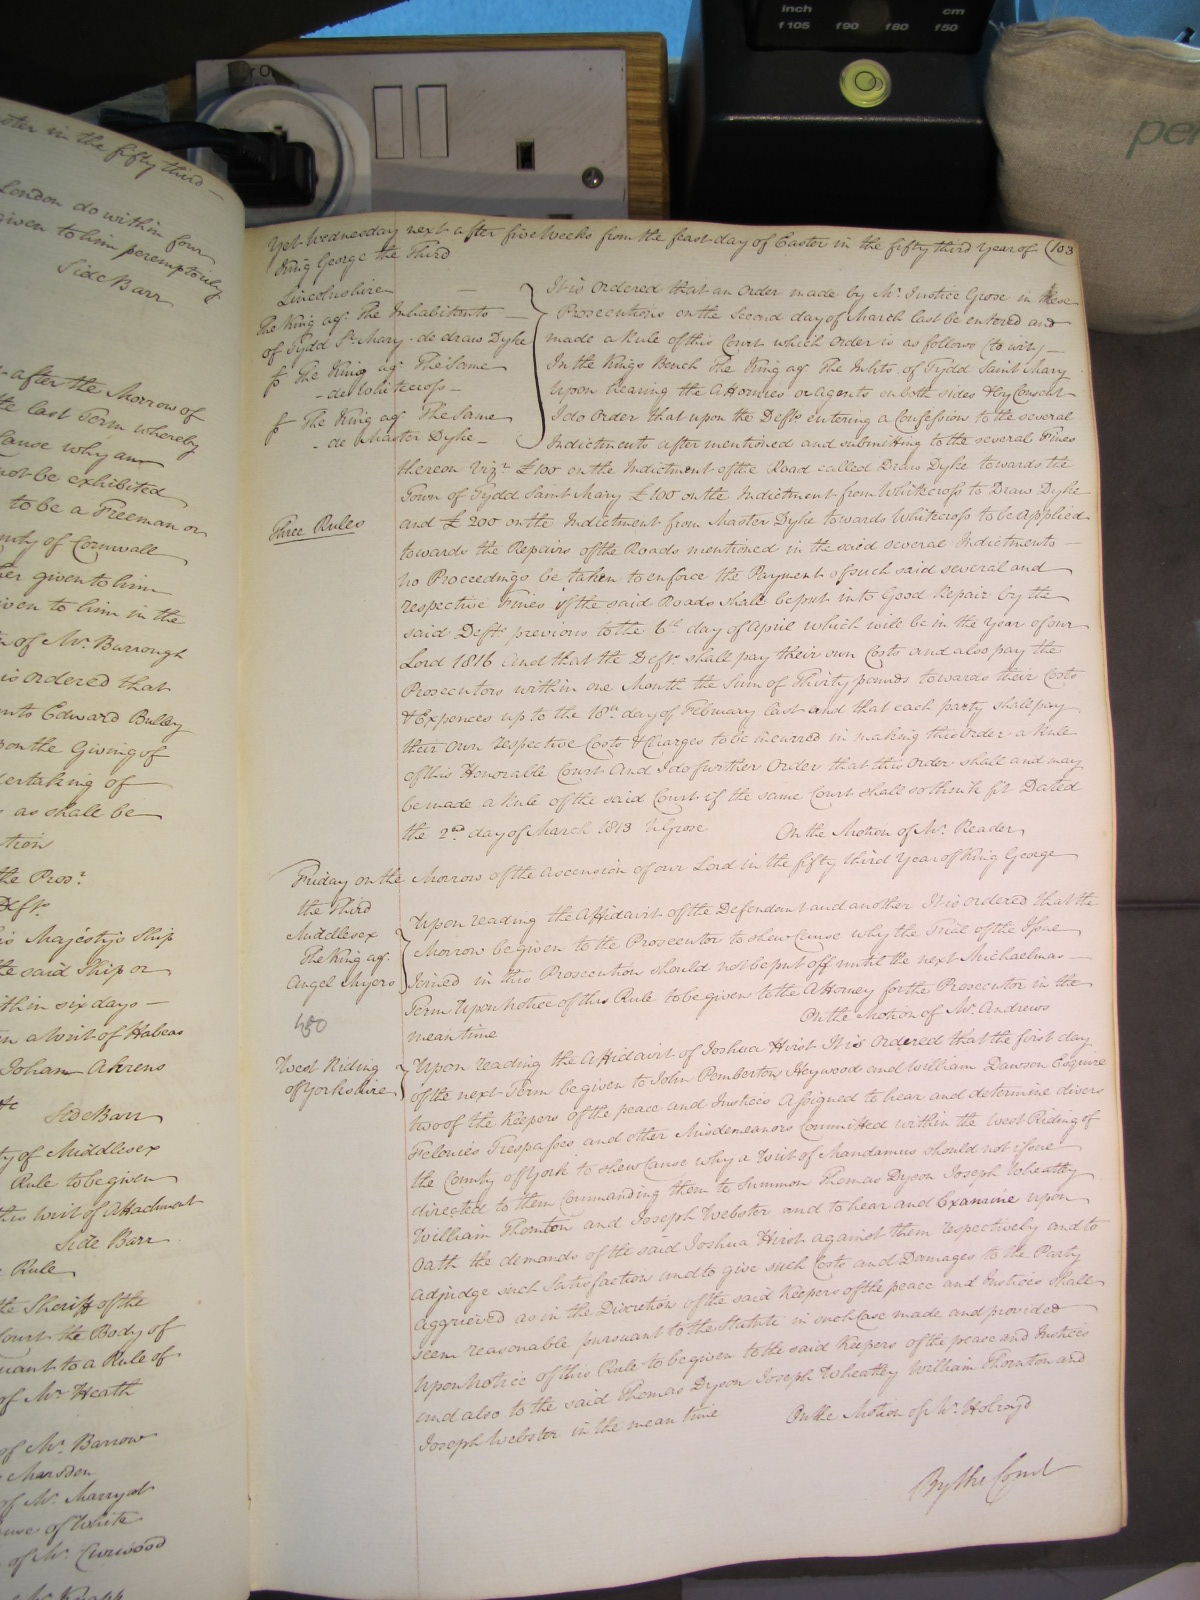 inch
cm
f105 f90 f80 f50
per
ster in the fifty third
London do within four
given to him peremptorily
Side Barr
after the Morrow of
the last Term whereby
Cause why an
not be exhibited
to be a Freeman or
County of Cornwall
her given to him
given to him in the
of Mr. Burrough
is ordered that
Edward Bulley
upon the Giving of
dertaking of
as shall be
tion
the Prosr.
Defts.
his Majesty's Ship
the said Ship or
within six days
a Writ of Habeas
Johan Ahrens
Side Barr
ty of Middlesex
Rule to be given
this Writ of Attachment
Side Barr
Rule
the Sheriff of the
Court the Body of
suant to a Rule of
of Mr. Heath
of Mr. Barrow
Marsden
of Mr. Marryat
of White
of Mr. Curwood
Mr. Knapp
Yet Wednesday next after five Weeks from the feast day of Easter in the fifty third Year of 103
King George the Third
Lincolnshire
The King agt. The Inhabitants
of Tydd St. Mary - de draw Dyke
The King agt. The Same
- de Whitecross -
The King agt. The Same
- de Master Dyke -
It is Ordered that an Order made by Mr. Justice Grose in these
Prosecutions on the Second day of March last be entered and
made a Rule of this Court which Order is as follows (to wit) -
In the Kings Bench The King agt. The Inhts. of Tydd Saint Mary
Upon hearing the Attornies or Agents on both sides & by Consent
I do Order that upon the Defts. entering a Confession to the several
Indictments after mentioned and submitting to the several Fines
thereon Vizt. £100 on the Indictment of the Road called Draw Dyke towards the
Town of Tydd Saint Mary £100 on the Indictment from Whitecross to Draw Dyke
Three Rules
and £200 on the Indictment from Master Dyke towards Whitecross to be applied
towards the Repairs of the Roads mentioned in the said several Indictments -
no Proceedings be taken to enforce the Payment of such said several and
respective Fines if the said Roads shall be put into Good Repair by the
said Defts. previous to the 6th. day of April which will be in the Year of our
Lord 1816 And that the Defts. shall pay their own Costs and also pay the
Prosecutors within one Month the Sum of Thirty pounds towards their Costs
& Expences up to the 18th. day of February last and that each party shall pay
their own respective Costs & Charges to be incurred in making this Order a Rule
of this Honorable Court And I do further Order that this Order shall and may
be made a Rule of the said Court if the same Court shall so think fit Dated
the 2nd. day of March 1813 N Grose On the Motion of Mr. Reader
Friday on the Morrow of the Ascension of our Lord in the fifty third Year of King George
the Third
Middlesex
The King agt.
Angel Myers
480
Upon reading the Affidavit of the Defendant and another It is ordered that the
Morrow be given to the Prosecutor to shew Cause why the Trial of the Issue
Joined in this Prosecution should not be put off until the next Michaelmas
Term Upon Notice of this Rule to be given to the Attorney for the Prosecutor in the
mean time On the Motion of Mr. Andrews
West Riding
of Yorkshire
Upon reading the Affidavit of Joshua Hirst It is Ordered that the first day
of the next Term be given to John Pemberton Heywood and William Dawson Esquire
two of the Keepers of the peace and Justices Assigned to hear and determine divers
Felonies Trespasses and other Misdemeanors Committed within the West Riding of
the County of York to shew Cause why a Writ of Mandamus should not issue
directed to them Commanding them to Summon Thomas Dyson Joseph Wheatley
William Thornton and Joseph Webster and to hear and Examine upon
Oath the demands of the said Joshua Hirst against them respectively and to
adjudge such Satisfaction and to give such Costs and Damages to the Party
aggrieved as in the Discretion of the said Keepers of the peace and Justices shall
seem reasonable pursuant to the Statute in such Case made and provided
Upon Notice of this Rule to be given to the said Keepers of the peace and Justices
and also to the said Thomas Dyson Joseph Wheatley William Thornton and
Joseph Webster in the mean time On the Motion of Mr. Holroyd
By the Court